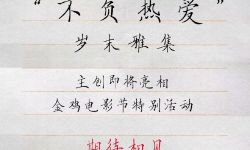 “不负热爱”
岁末雅集
主创即将亮相
金鸡电影节特别活动
期待相见